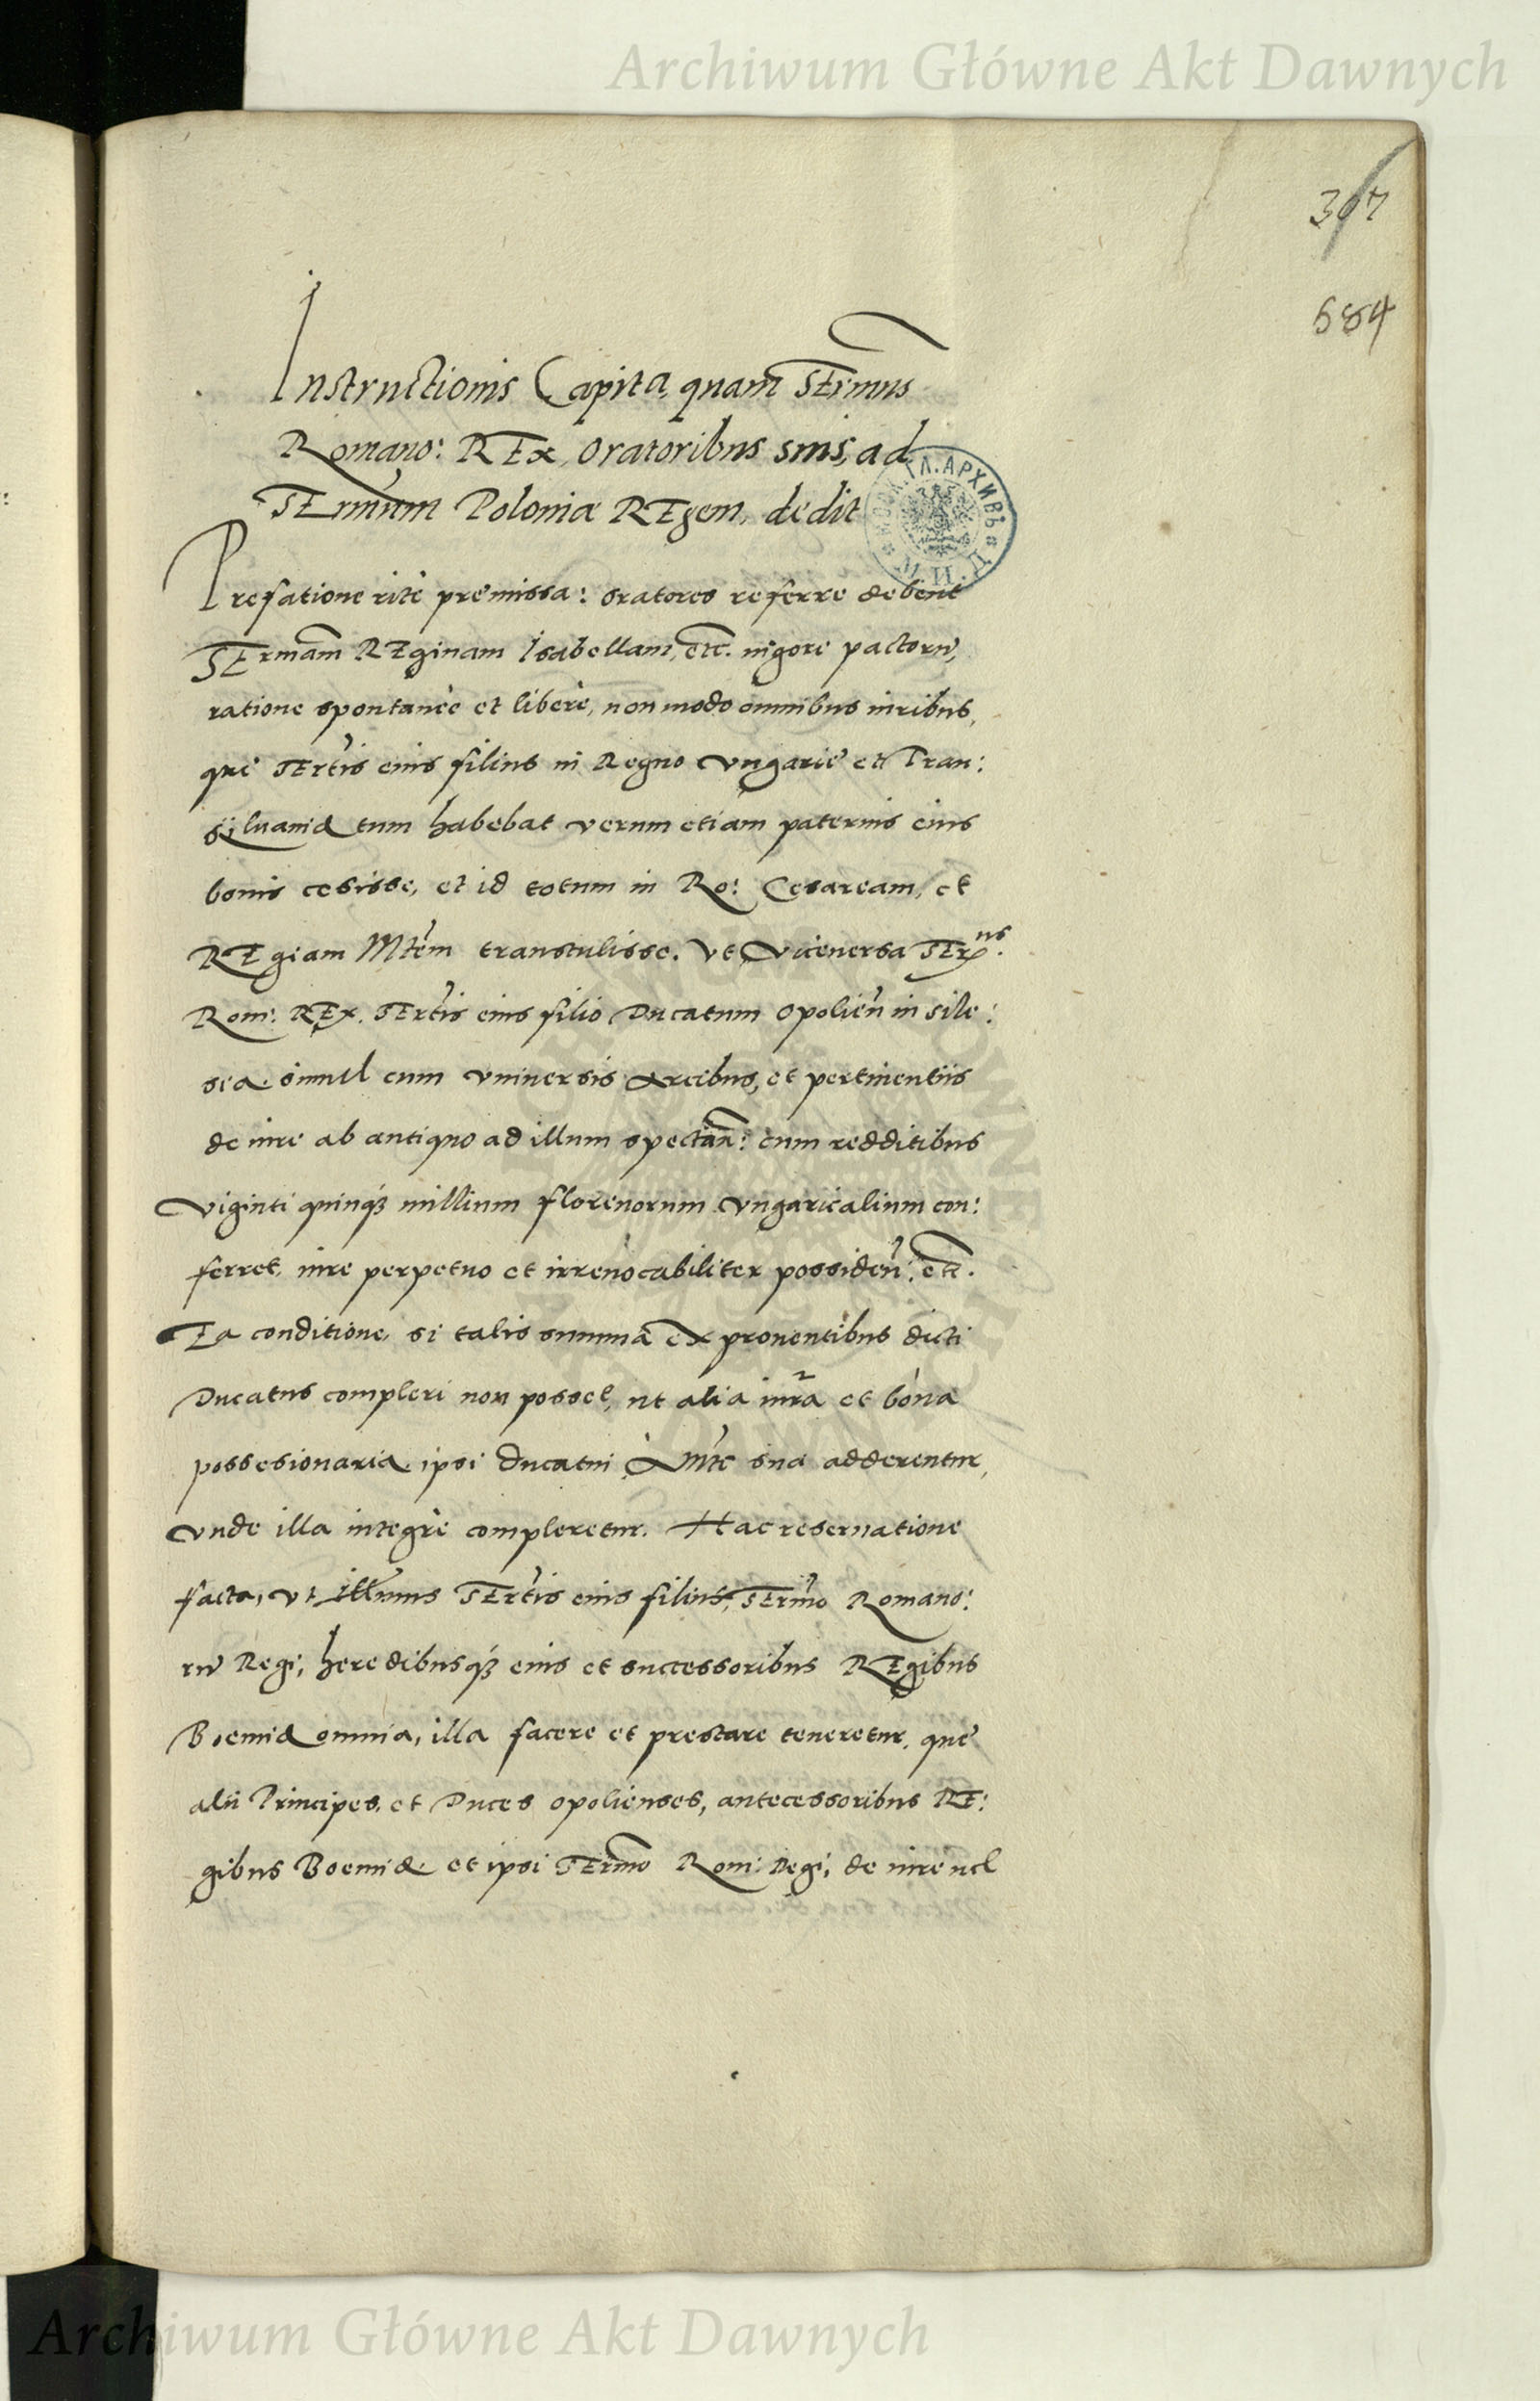 Archiwum Główne Akt Dawnych
307
684
Instructionis Capita, quam SErmus
Romano: REx, oratoribus suis, ad
SErmum Poloniæ REgem, dedit
ГЛ. АРХИВЪ
Prefatione ritè premissa: oratores referre debent
SErmam REginam Isabellam, etc. uigore pactorum,
ratione spontanèe et liberè, non modo omnibus iuribus,
que SErtis eius filius in Regno Vngarie et Tran:
siluaniæ tum habebat verum etiam paternis eius
bonis cesisse, et id totum in Ro: Cesaream, et
REgiam Mtem transtulisse. Vt Viceuersa SErmus.
Rom: REx, SErtis eius filio Ducatum Opolien in Sile:
sia simul cum Vniuersis Arcibus, et pertinentiis
de iure ab antiquo ad illum spectan: cum redditibus
Viginti quinq3 millium florenorum Vngaricalium con:
ferret, iure perpetuo et irreuocabiliter possiden: etc.
Ea conditione, si talis summa ex prouentibus dicti
Ducatus compleri non posset, ut alia iura et bona
possesionaria ipsi Ducatui à Mte sua adderentur,
Vnde illa integrè compleretur. Hac reseruatione
facta, Vt Illmus SErtis eius filius, SErmo Romano:
rum Regi, heredibusq3 eius et successoribus REgibus
Boemiæ omnia, illa facere et prestare teneretur, que
alii Principes et Duces Opolienses, antecessoribus RE:
gibus Boemiæ et ipsi SErmo Rom: Regi, de iure uel
Archiwum Główne Akt Dawnych